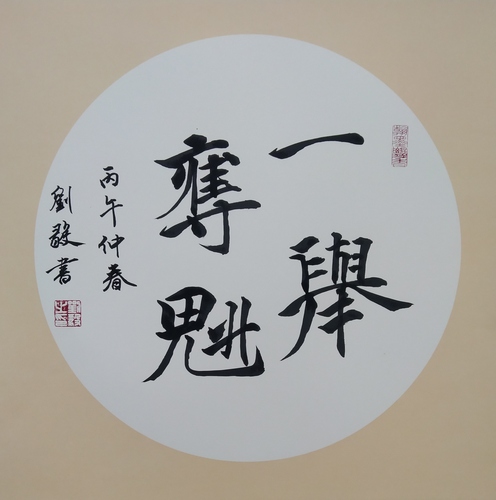 一舉
奪魁
丙午仲春
劉毅書